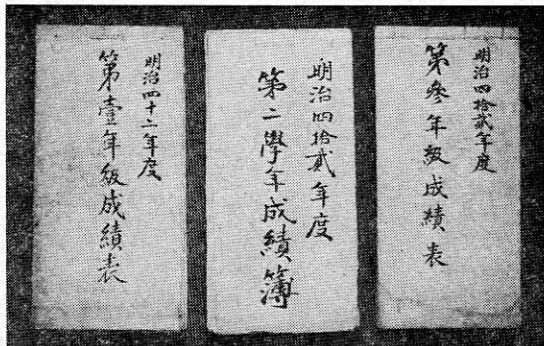 明治四拾貳年度
第參年級成績表
明治四拾貳年度
第二學年成績簿
明治四十二年度
第壹年級成績表